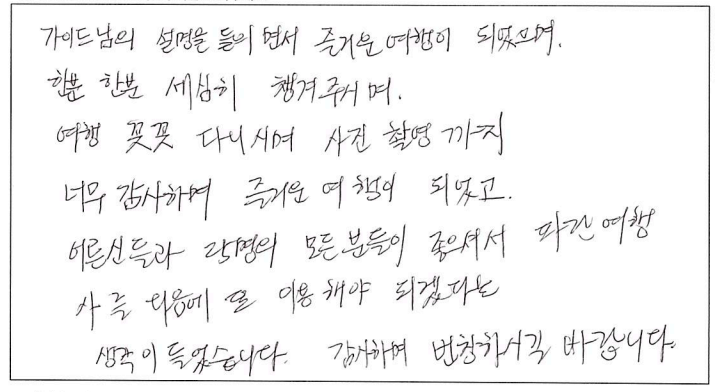 가이드님의 설명을 들으면서 즐거운 여행이 되었으며.
한분 한분 세심히 챙겨주시며.
여행 꽂꽂 다니시며 사진 촬영까지
너무 감사하며 즐거운 여행이 되었고.
어른신들과 25명의 모든분들이 좋으셔서 파란여행
사를 다음에 또 이용해야 되겠다는
생각이 들었습니다. 감사하며 번창하시길 바랍니다.